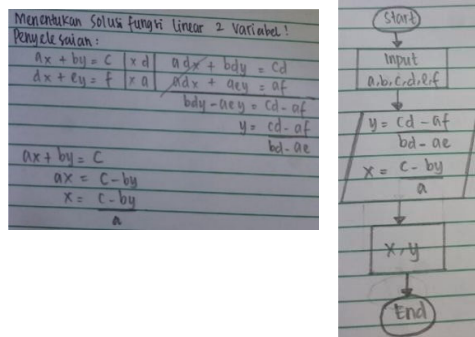 Menentukan Solusi fungsi linear 2 Variabel!
Penyelesaian:
ax + by = c | x d | adx + bdy = cd
dx + ey = f | x a | adx + aey = af
bdy - aey = cd - af
y = cd - af
bd - ae
ax + by = c
ax = c - by
x = c - by
a
Start
Input
a,b,c,d,e,f
y = cd - af
bd - ae
x = c - by
a
x, y
End